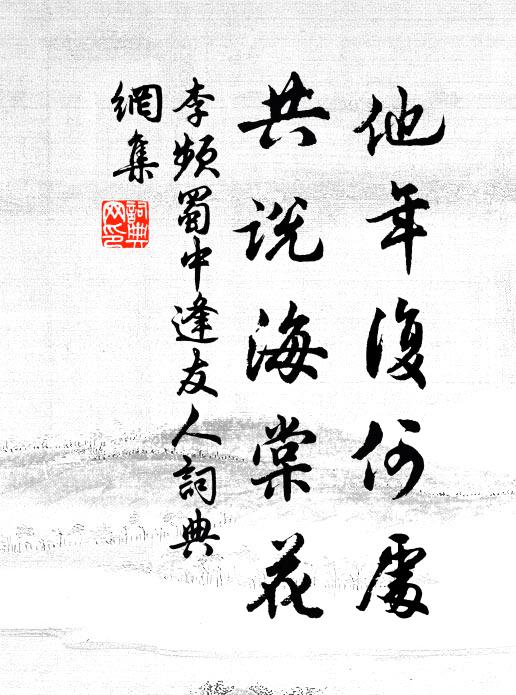 他年復何處
共說海棠花
李頻蜀中逢友人詞典
網集
詞典
网印